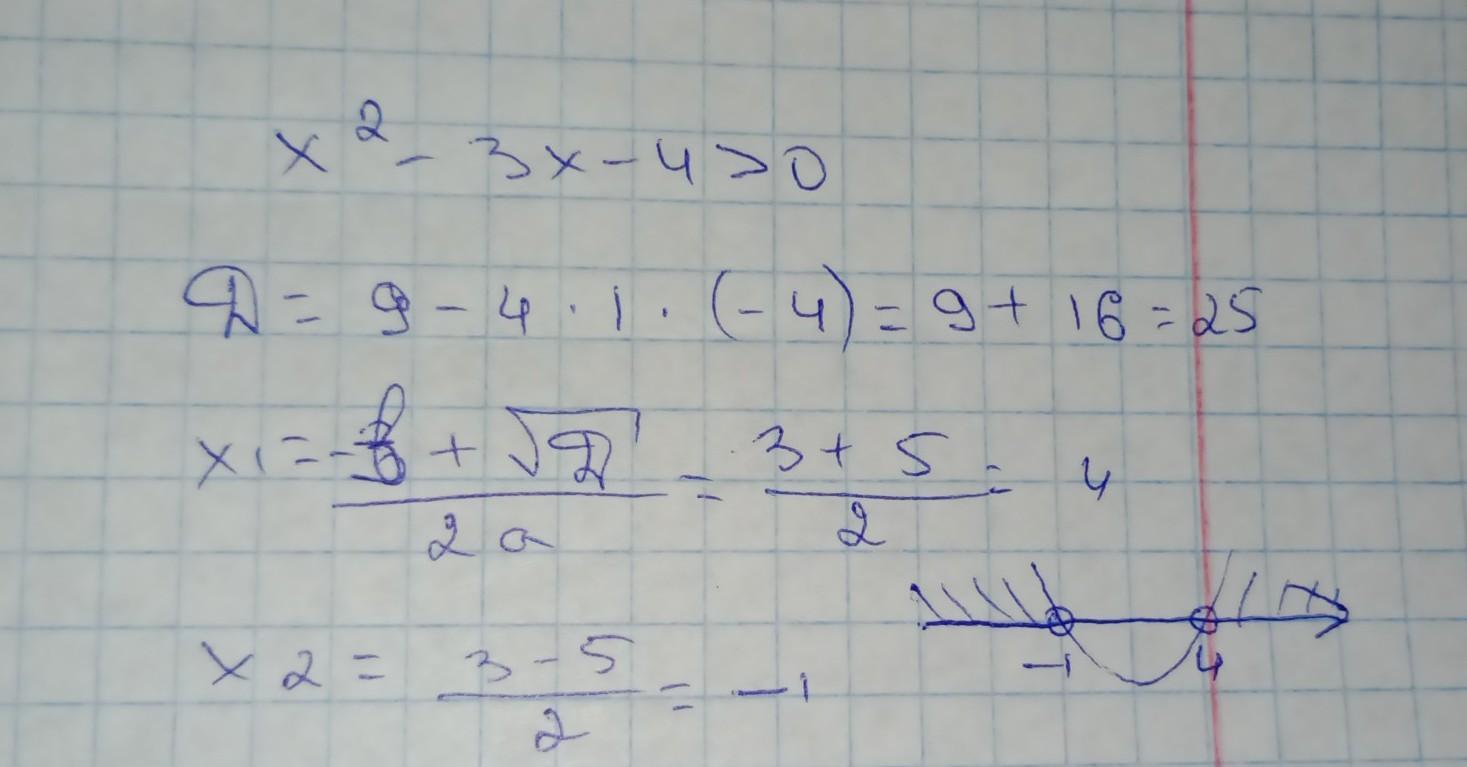 x² - 3x - 4 > 0
D = 9 - 4 · 1 · (-4) = 9 + 16 = 25
x1 = (-b + √D)/(2a) = (3 + 5)/2 = 4
x2 = (3 - 5)/2 = -1
-1 4